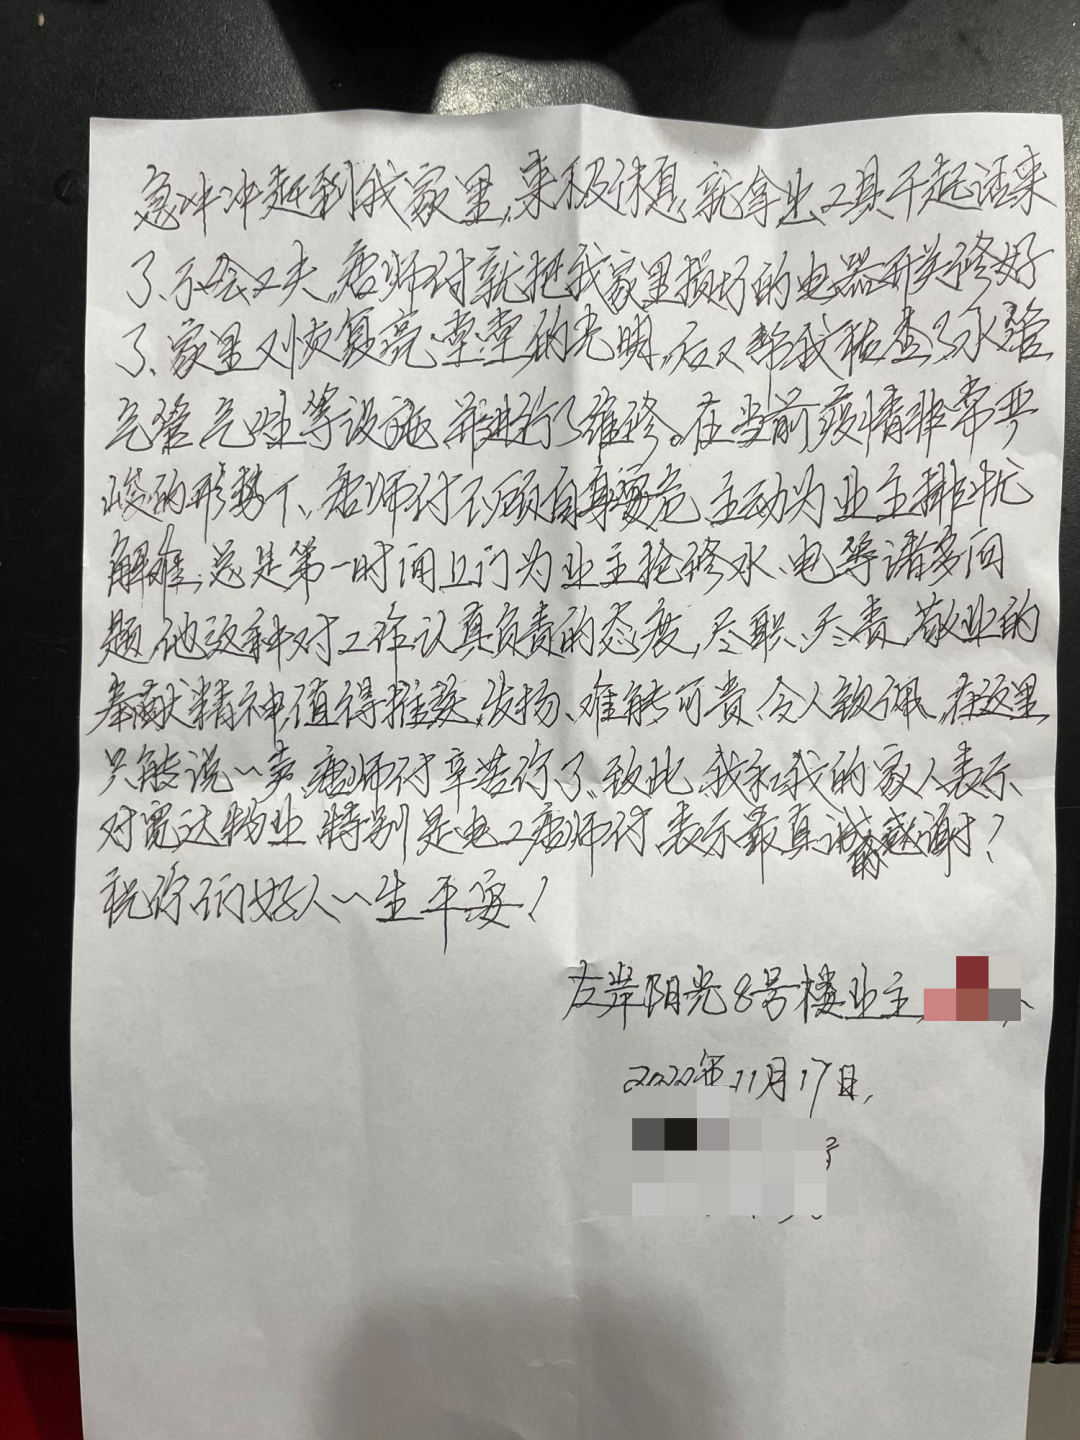 急冲冲赶到我家里,来不及休息,就拿出工具干起活来
了、不会工夫,唐师付就把我家里损坏的电器开关修好
了、家里又恢复亮堂堂的光明,后又帮我检查了水管
气管、气灶等设施,并进行了维修。在当前疫情非常严
峻的形势下、唐师付不顾自身安危,主动为业主排忧
解难,总是第一时间上门为业主抢修水、电等诸多问
题,他这种对工作认真负责的态度,尽职、尽责、敬业的
奉献精神,值得推获,发扬、难能可贵,令人钦佩,在这里
只能说一声,唐师付辛苦你了、致此,我和我的家人表示
对宽达物业,特别是电工唐师付,表示最真诚的感谢!
祝你们好人一生平安!
左岸阳光8号楼业主,
2022年11月17日,